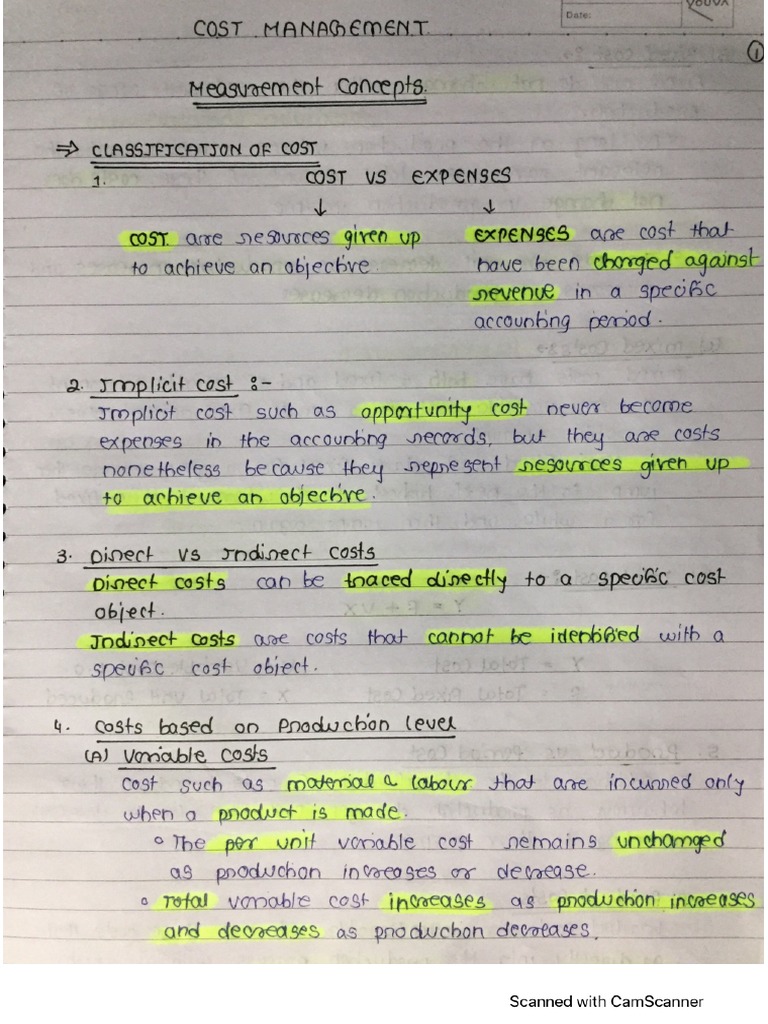 YOUVA
Date:
COST MANAGEMENT
1
Measurement Concepts.
⇒ CLASSIFICATION OF COST
1. COST VS EXPENSES
↓ ↓
COST are resources given up
to achieve an objective
EXPENSES are cost that
have been charged against
revenue in a specific
accounting period.
2. Implicit cost :-
Implicit cost such as opportunity cost never become
expenses in the accounting records, but they are costs
nonetheless because they represent resources given up
to achieve an objective.
3. Direct vs Indirect costs
Direct costs can be traced directly to a specific cost
object.
Indirect costs are costs that cannot be identified with a
specific cost object.
4. Costs based on Production level
(A) Variable costs
Cost such as material & labour that are incurred only
when a product is made.
° The per unit variable cost remains unchanged
as production increases or decrease.
° Total variable cost increases as production increases
and decreases as production decreases.
Scanned with CamScanner